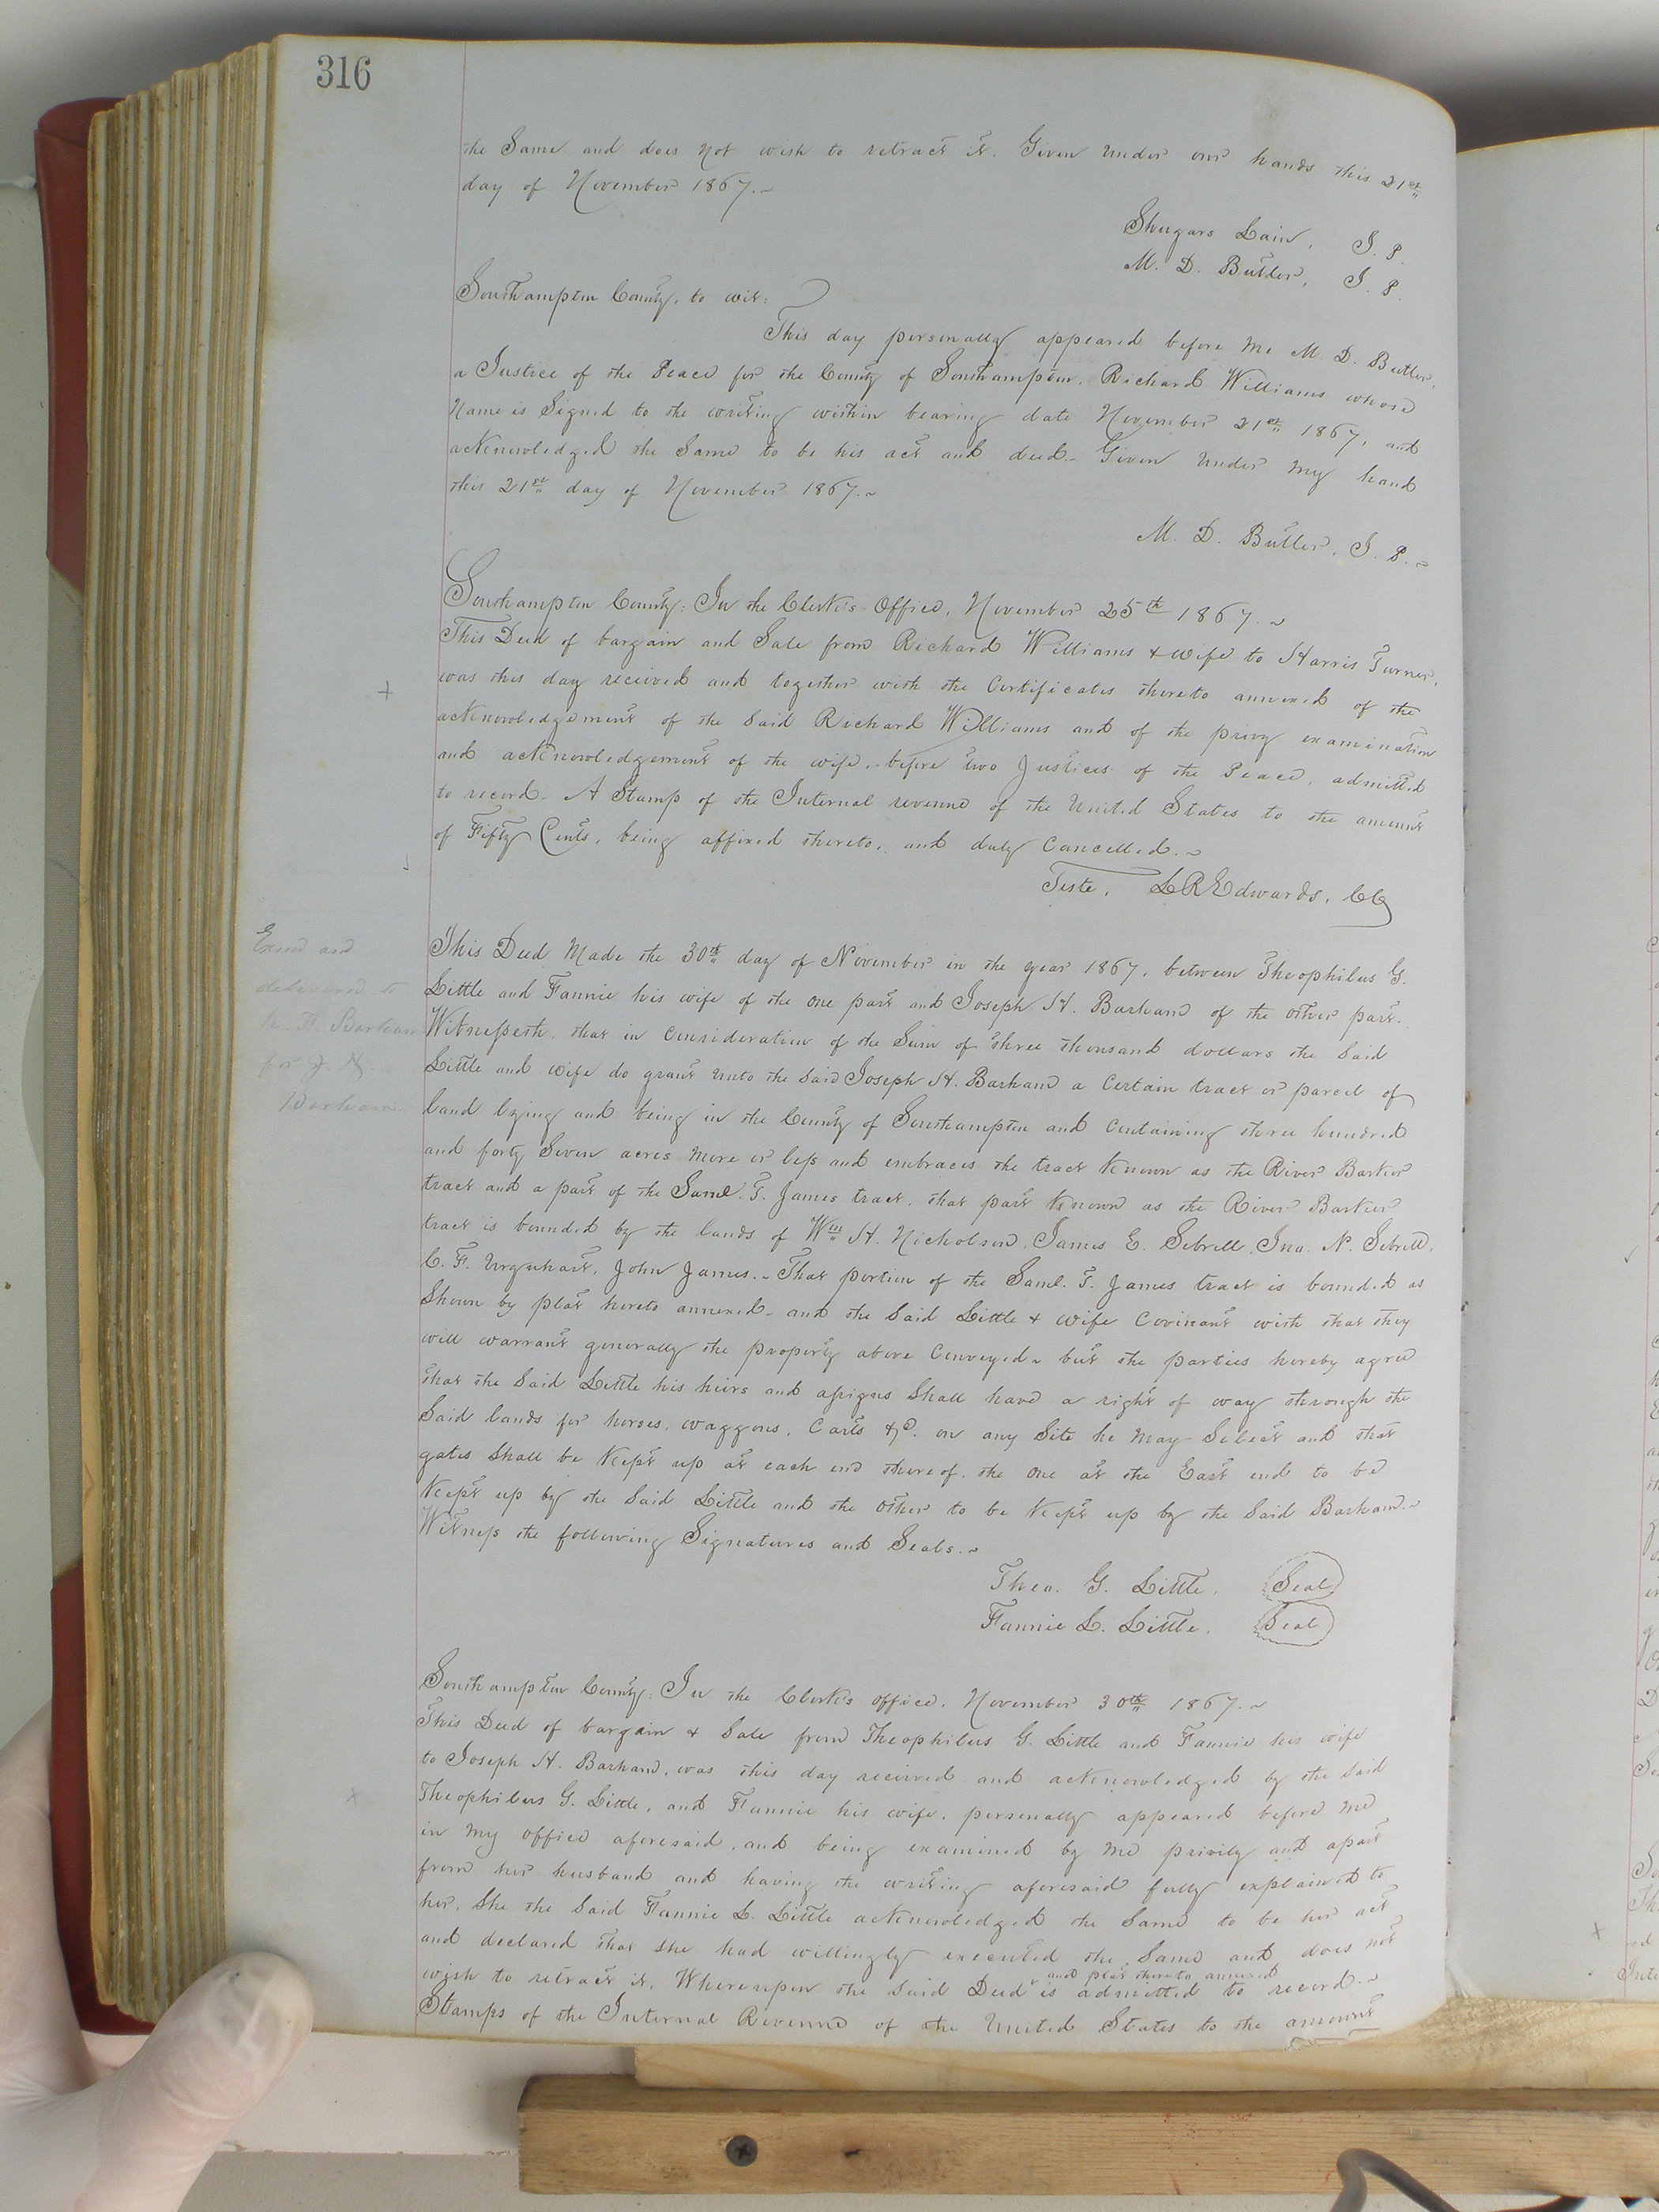 316
the Same and does not wish to retract it. Given under our hands this 21st
day of November 1867.~
Shugars Lain, J. P.
M. D. Butler, J. P.
Southampton County, to wit:
This day personally appeared before me M. D. Butler,
a Justice of the Peace for the County of Southampton, Richard Williams whose
name is Signed to the writing within bearing date November 21st 1867, and
acknowledged the Same to be his act and deed. Given under my hand
this 21st day of November 1867.~
M. D. Butler, J. P.~
Southampton County: In the Clerk's Office, November 25th 1867.~
This Deed of bargain and Sale from Richard Williams & wife to Harris Turner,
was this day received and together with the Certificates thereto annexed of the
acknowledgement of the Said Richard Williams and of the privy examination
and acknowledgement of the wife, before two Justices of the Peace, admitted
to record. A Stamp of the Internal revenue of the United States to the amount
of Fifty Cents, being affixed thereto, and duly Cancelled.~
Teste, L R Edwards, CC
This Deed Made the 30th day of November in the year 1867, between Theophilus G.
Little and Fannie his wife of the one part and Joseph H. Barham of the other part.
Witnesseth, that in Consideration of the Sum of three thousand dollars the Said
Little and wife do grant unto the Said Joseph H. Barham a Certain tract or parcel of
land lying and being in the County of Southampton and Containing three hundred
and forty Seven acres more or less and embraces the tract Known as the River Barker
tract and a part of the Saml. T. James tract, that part Known as the River Barker
tract is bounded by the lands of Wm H. Nicholson, James E. Sebrell, Jno. N. Sebrell,
C. F. Urquhart, John James.~ That portion of the Saml. T. James tract is bounded as
Shown by plat hereto annexed- and the Said Little & wife Covinant with that they
will warrant generally the property above Conveyed~ but the parties hereby agree
that the Said Little his heirs and assigns Shall have a right of way through the
Said lands for horses, waggons, Carts &c. on any Site he may Select and that
gates Shall be Kept up at each end thereof, the one at the East end to be
Kept up by the Said Little and the other to be Kept up by the Said Barham.~
Witness the following Signatures and Seals.~
Theo. G. Little, Seal
Fannie L. Little, Seal
Southampton County: In the Clerk's office, November 30th 1867.~
This Deed of bargain & Sale from Theophilus G. Little and Fannie his wife
to Joseph H. Barham, was this day received and acknowledged by the Said
Theophilus G. Little, and Fannie his wife, personally appeared before me
in my office aforesaid, and being examined by me privily and apart
from her husband and having the writing aforesaid fully explained to
her, She the Said Fannie L. Little acknowledged the Same to be her act
and declared that She had willingly executed the Same and does not
and plat thereto annexed
wish to retract it. Whereupon the Said Deed is admitted to record.~
Stamps of the Internal Revenue of the United States to the amount
Exmd and
delivered to
Barham
for J. H.
Barham